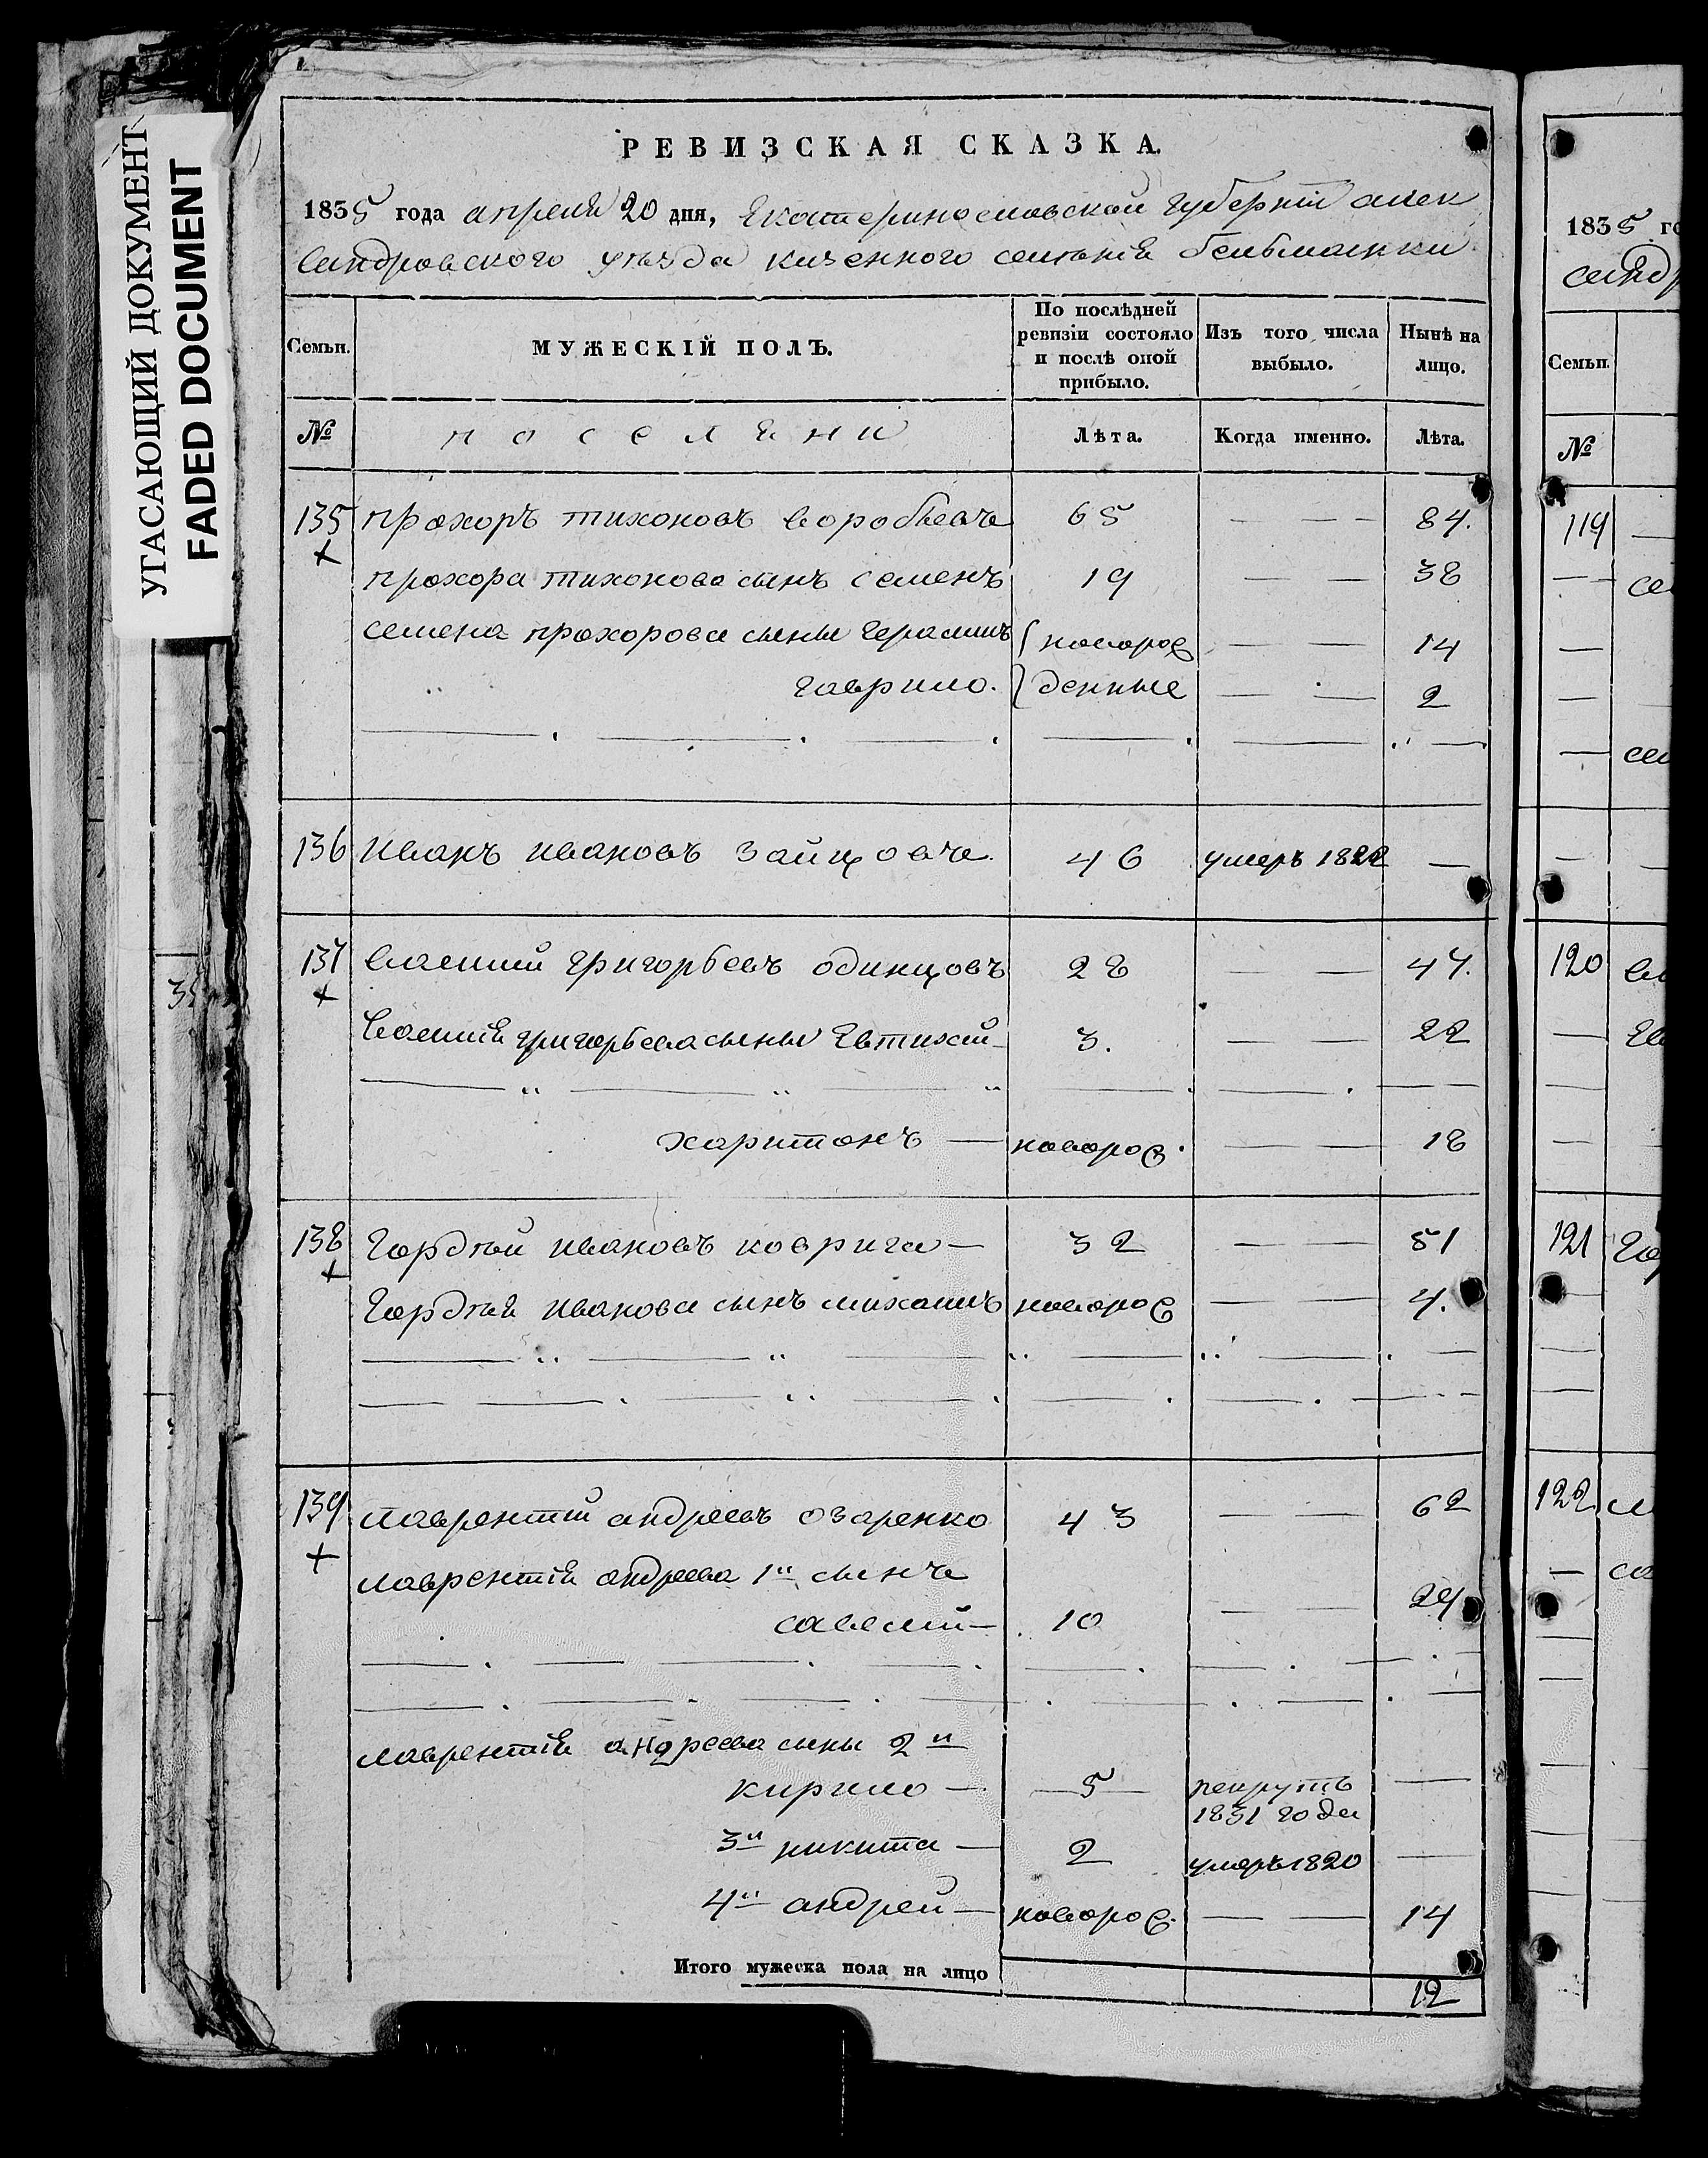 УГАСАЮЩИЙ ДОКУМЕНТ
FADED DOCUMENT
РЕВИЗСКАЯ СКАЗКА.
1835 года апреля 20 дня, Екатеринославской губернiи алек
сандровского уѣзда казенного селенiя бельманки
Семьи.
МУЖЕСКІЙ ПОЛЪ.
По послѣдней ревизіи состояло и послѣ оной прибыло.
Изъ того числа выбыло.
Нынѣ на лицо.
№ поселяни Лѣта. Когда именно. Лѣта.
135 прохоръ тихоновъ воробьевъ 65 — — 84.
прохора тихонова сынъ семенъ 19 — — 38
семена прохорова сыны герасимъ новорож — — 14
гаврило. денные — — 2
136 Иванъ ивановъ зайцовъ. 46 умеръ 1822 —
137 василий григорьевъ одинцовъ 28 — — 47.
василiя григорьева сыны Евтихiй 3. — — 22
харитонъ — новорож. — — 18
138 Гордѣй ивановъ коврига — 32 — — 51
Гордѣя иванова сынъ михаилъ новорож — — 4.
139 лаврентiй андреевъ озаренко 43 — — 62
лаврентiя андреева 1й сынъ
савелий — 10 — — 29
лаврентiя андреева сыны 2й
кирило — 5 рекрутъ —
1831 года
3й никита — 2 умеръ 1820 —
4й андрей — новорож. — — 14
Итого мужеска пола на лицо 12
35
1835 го
сандр
Семьи.
№
119 —
— се
—
—
— се
— —
120 ва
— Ев
—
— —
121 Го
—
—
—
122
—